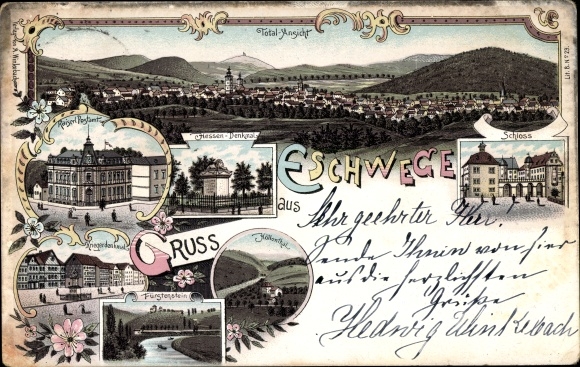 Total-Ansicht
Kaiserl. Postamt
Hessen-Denkmal
Schloss
Gruss
aus
Eschwege
Kriegerdenkmal
Höllenthal
Fürstenstein
Sehr geehrter Herr.
Sende Ihnen von hier
aus die herzlichsten
Grüße
Hedwig
Lit. B. No 23.